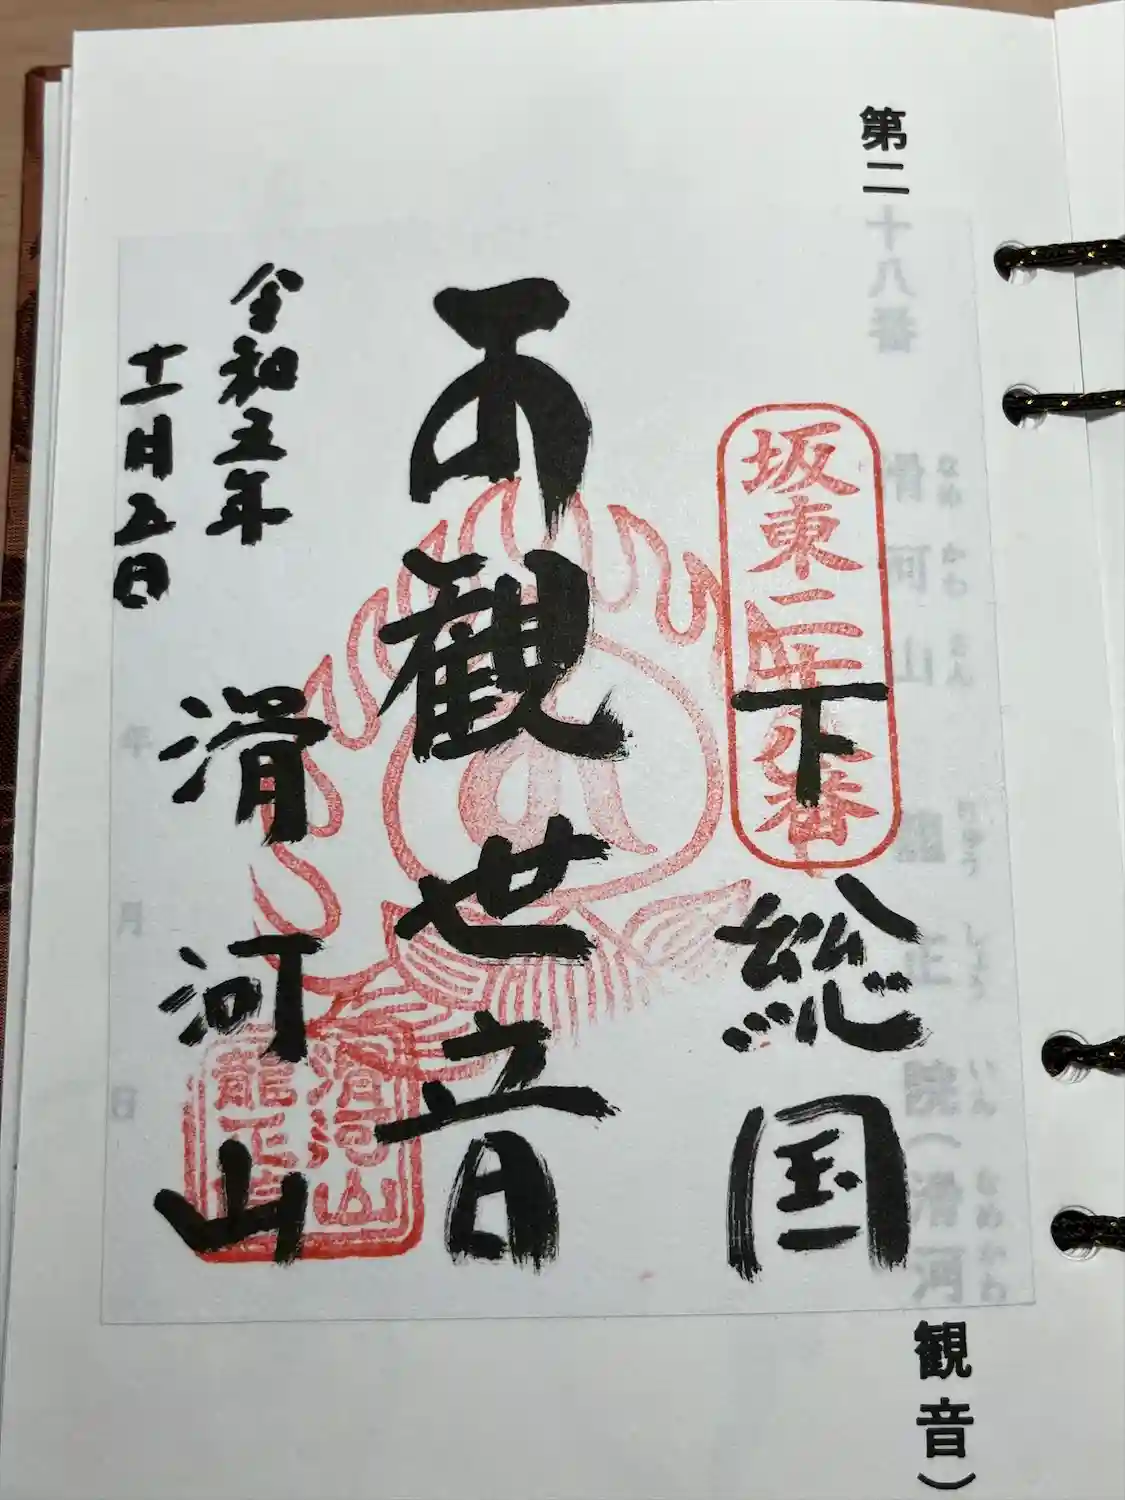 第二十八番
滑河山 龍正院(滑河観音)
なめ かわ さん りゅう しょう いん なめかわ
坂東二十八番
下総国
観世音
滑河山
滑河山
龍正
令和五年
十一月五日
年 月 日